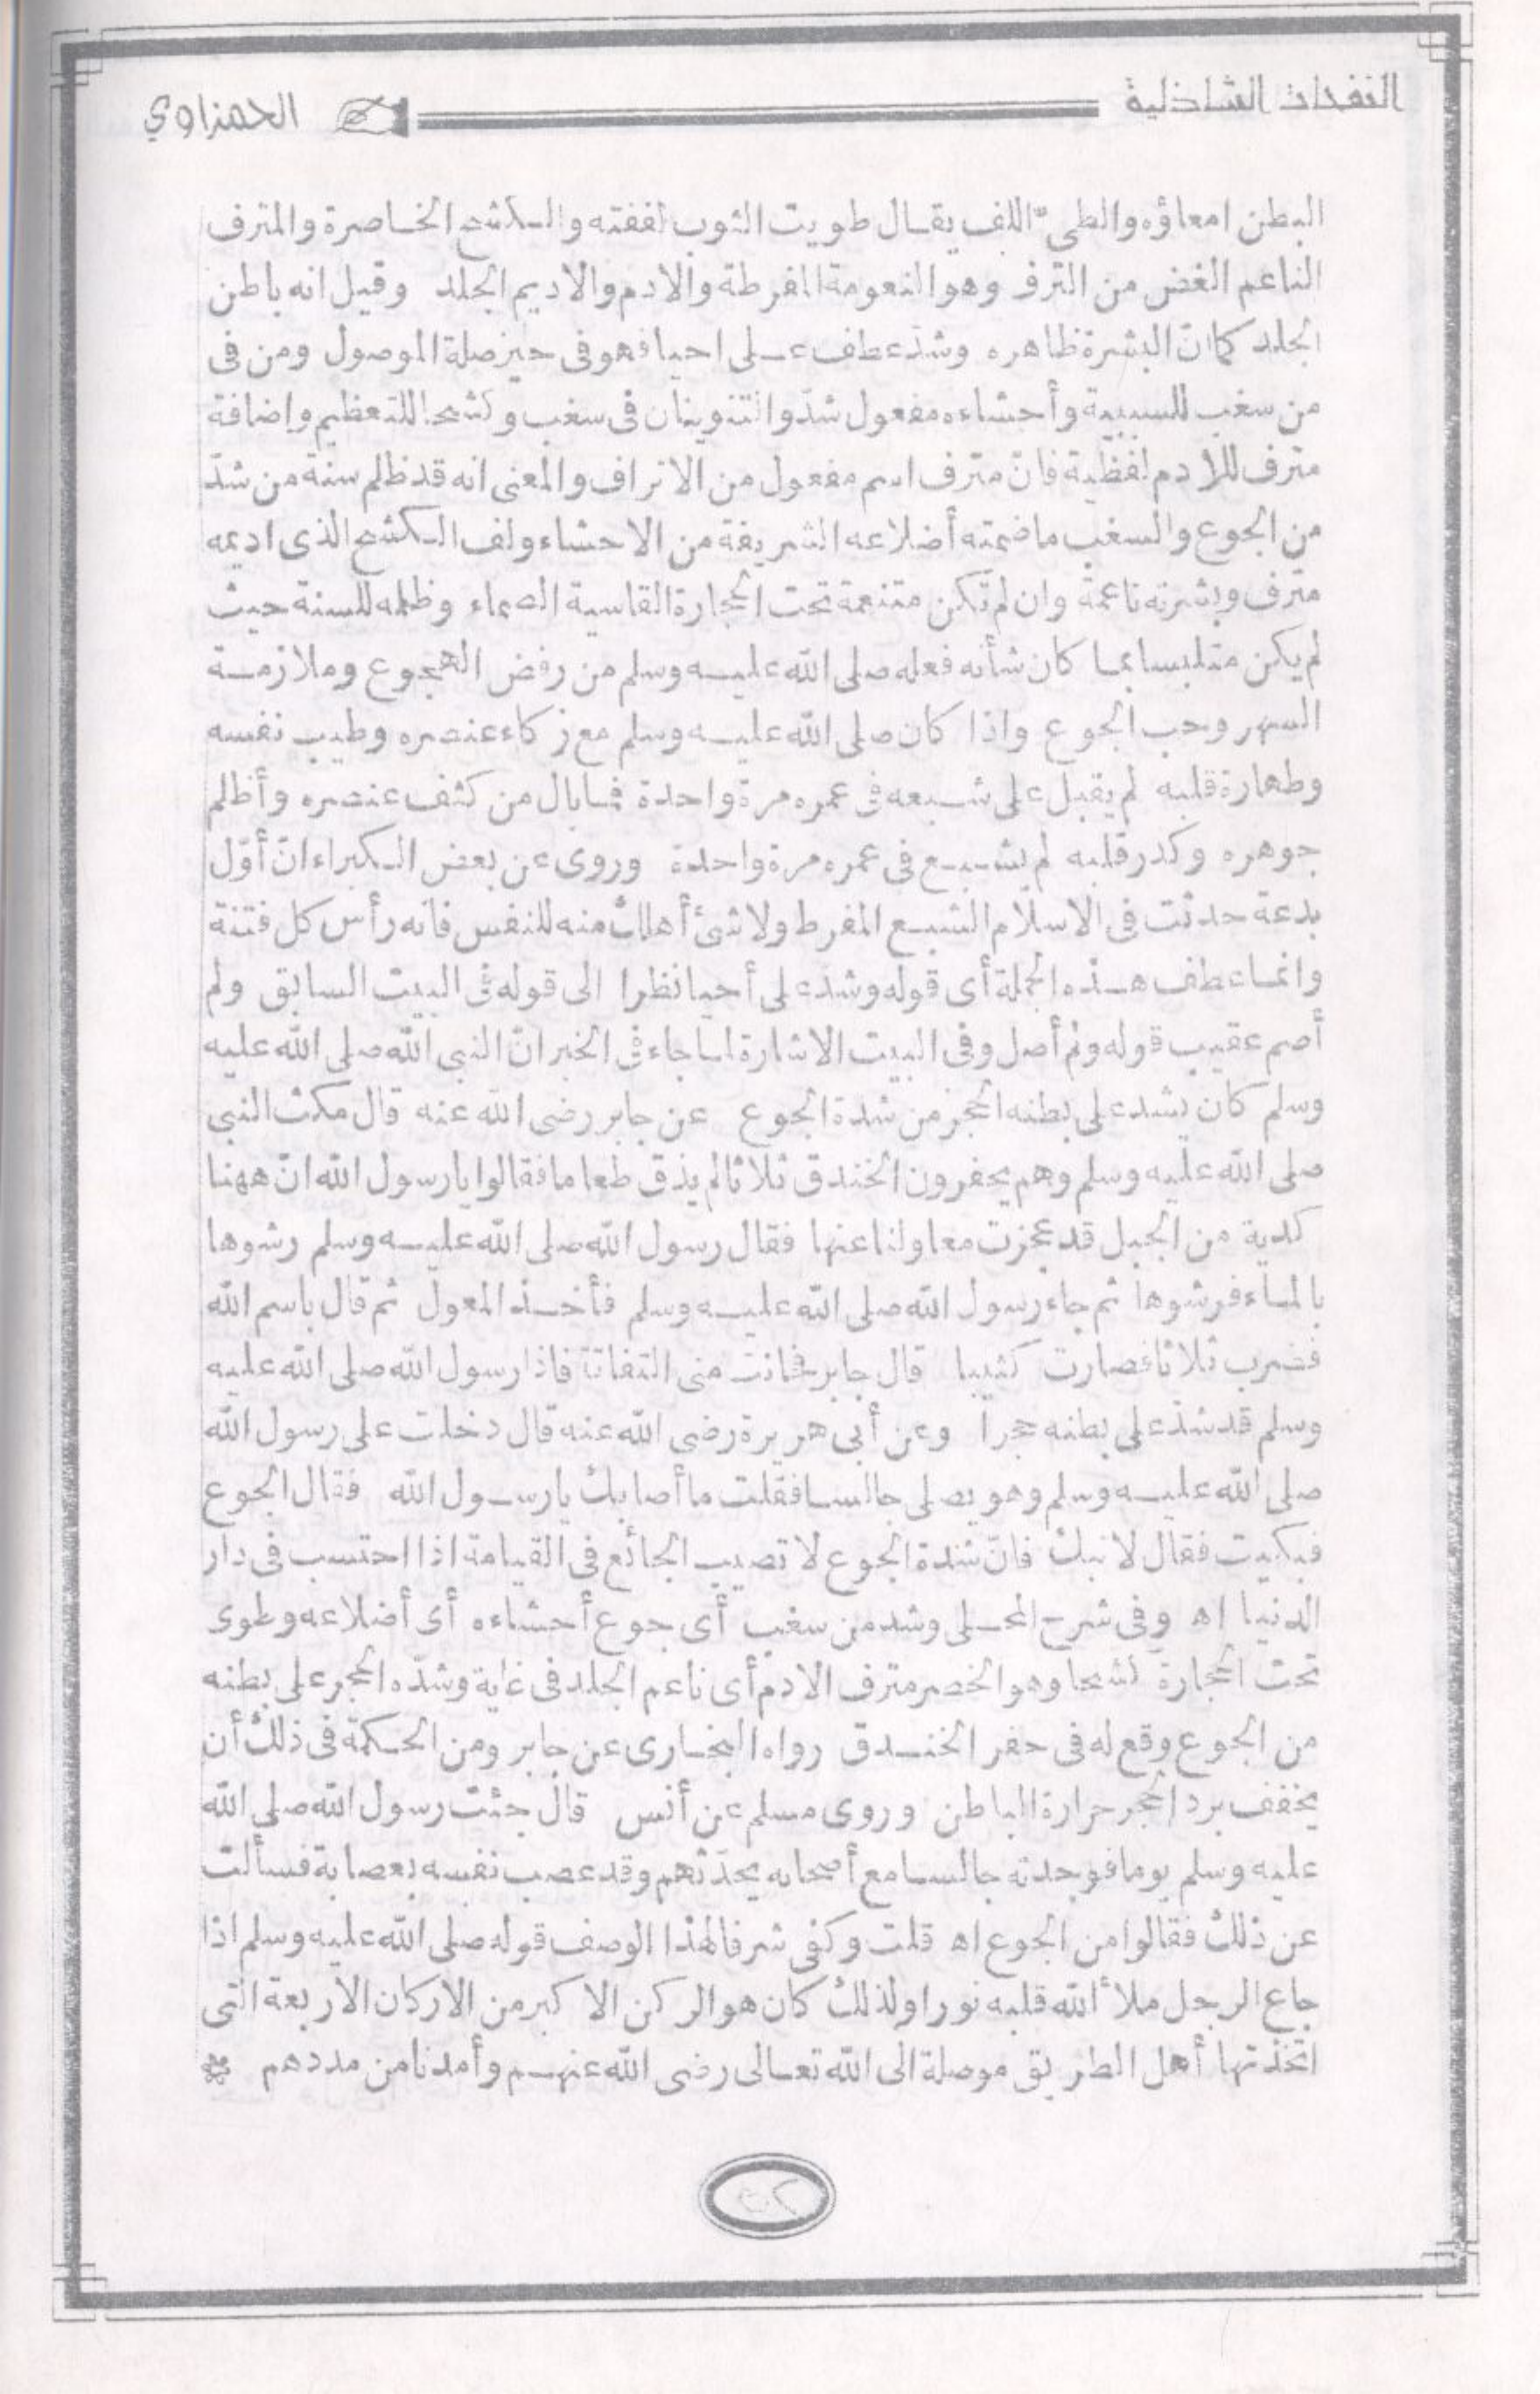 النفحات الشاذلية الحمزاوي
البطن امعاؤه والطىّ اللف يقال طويت الثوب لففته والكشح الخاصرة والمترف
الناعم الغض من الترف وهو النعومة المفرطة والادم والاديم الجلد وقيل انه باطن
الجلد كما انّ البشرة ظاهره وشدّ عطف على احيا فهو فى حيز صلة الموصول ومن فى
من سغب للسببية وأحشاءه مفعول شدّ والتنوينان فى سغب وكشحا للتعظيم واضافة
مترف للادم لفظية فانّ مترف اسم مفعول من الاتراف والمعنى انه قد ظلم سنة من شدّ
من الجوع والسغب ما ضمته أضلاعه الشريفة من الاحشاء ولف الكشح الذى اديمه
مترف وبشرته ناعمة وان لم تكن متنعمة تحت الحجارة القاسية الصماء وظلمه للسنة حيث
لم يكن متلبسا بما كان شأنه فعله صلى الله عليه وسلم من رفض الهجوع وملازمة
السهر وحب الجوع واذا كان صلى الله عليه وسلم مع زكاء عنصره وطيب نفسه
وطهارة قلبه لم يقبل على شبعه فى عمره مرة واحدة فما بال من كثف عنصره وأظلم
جوهره وكدر قلبه لم يشبع فى عمره مرة واحدة وروى عن بعض الكبراء انّ أوّل
بدعة حدثت فى الاسلام الشبع المفرط ولا شئ أهلك منه للنفس فانه رأس كل فتنة
وانما عطف هذه الجملة أى قوله وشد على أحيا نظرا الى قوله فى البيت السابق ولم
أصم عقيب قوله ولم أصل وفى البيت الاشارة لما جاء فى الخبر انّ النبى الله صلى الله عليه
وسلم كان يشد على بطنه الحجر من شدة الجوع عن جابر رضى الله عنه قال مكث النبى
صلى الله عليه وسلم وهم يحفرون الخندق ثلاثا لم يذق طعاما فقالوا يا رسول الله انّ ههنا
كدية من الجبل قد عجزت معاولنا عنها فقال رسول الله صلى الله عليه وسلم رشوها
بالماء فرشوها ثم جاء رسول الله صلى الله عليه وسلم فأخذ المعول ثم قال باسم الله
فضرب ثلاثا فصارت كثيبا قال جابر فحانت منى التفاتة فاذا رسول الله صلى الله عليه
وسلم قد شدّ على بطنه حجرا وعن أبى هريرة رضى الله عنه قال دخلت على رسول الله
صلى الله عليه وسلم وهو يصلى جالسا فقلت ما أصابك يا رسول الله فقال الجوع
فبكيت فقال لا تبك فانّ شدة الجوع لا تصيب الجائع فى القيامة اذا احتسب فى دار
الدنيا اه وفى شرح المحلى وشد من سغب أى جوع أحشاءه أى أضلاعه وطوى
تحت الحجارة كشحا وهو الخصر مترف الادم أى ناعم الجلد فى غاية وشدّه الحجر على بطنه
من الجوع وقع له فى حفر الخندق رواه البخارى عن جابر ومن الحكمة فى ذلك أن
يخفف برد الحجر حرارة الباطن وروى مسلم عن أنس قال جئت رسول الله صلى الله
عليه وسلم يوما فوجدته جالسا مع أصحابه يحدّثهم وقد عصب نفسه بعصابة فسألت
عن ذلك فقالوا من الجوع اه قلت وكفى شرفا لهذا الوصف قوله صلى الله عليه وسلم اذا
جاع الرجل ملأ الله قلبه نورا ولذلك كان هو الركن الاكبر من الاركان الاربعة التى
اتخذتها أهل الطريق موصلة الى الله تعالى رضى الله عنهم وأمدنا من مددهم